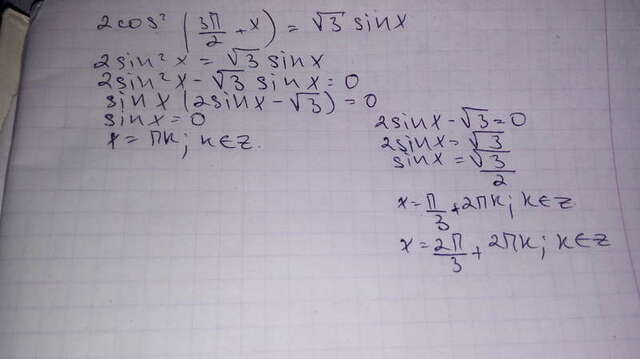 2cos² (3π/2 + x) = √3 sinx
2sin²x = √3 sinx
2sin²x - √3 sinx = 0
sinx (2sinx - √3) = 0
sinx = 0
x = πk; k∈z.
2sinx - √3 = 0
2sinx = √3
sinx = √3/2
x = π/3 + 2πk; k∈z
x = 2π/3 + 2πk; k∈z